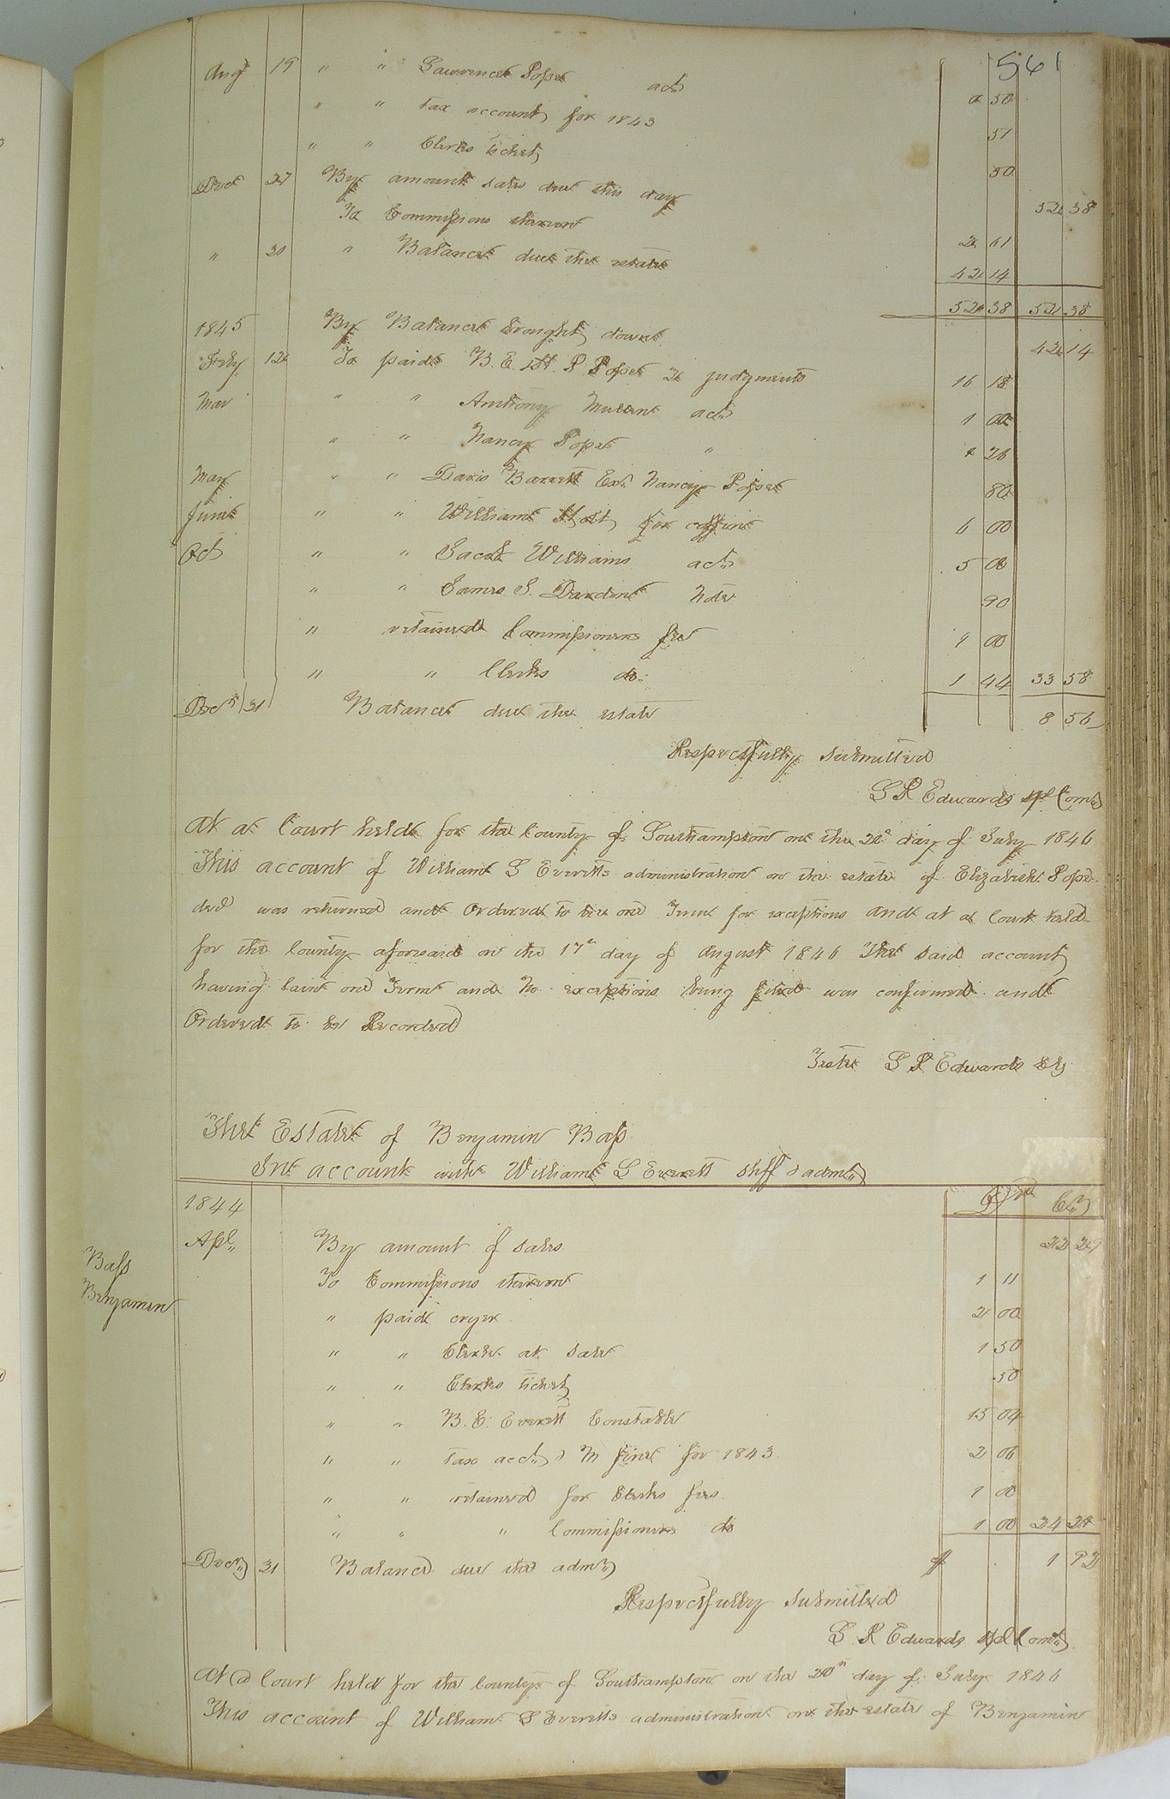 561
Augt 19 " " Lawrence Pope act 2 50
" " Tax account for 1843 51
" " Clerks ticket 50
Decr 27 By amount sales due this day 52 38
To Commissions thereon 2 61
" 30 " Balance due the estate 42 14
52 38 52 38
1845 By Balance brought down 42 14
Feby 12 To paid B. E. & H. P. Pope 2 judgments 16 18
Mar " " Anthony act 1 00
" " Nancy Pope " 26
May " " Davis Barrett Exr Nancy Pope 80
June " " William for coffin 6 00
Oct " " Jacob Williams act 5 00
" " James S. Darden Note 90
" retained Commissioners fee 1 00
" " Clerks do. 1 44 33 58
Decr 31 Balance due the estate 8 56
Respectfully submitted
L R Edwards spl Comr
At a Court held for the County of Southampton on the 20th day of July 1846
This account of William L Everitts administration on the estate of Elizabeth Pope
decd was returned and Ordered to lie one Term for exceptions And at a Court held
for the County aforesaid on the 17th day of August 1846 The said account
having lain one Term and No exceptions being filed was confirmed and
Ordered to be Recorded
Teste L R Edwards Clk
The Estate of Benjamin Bass
In account with William L Everett Shff & admr
Dr Cr
1844
Bass
Benjamin
Apl By amount of sales 22 29
To Commissions thereon 1 11
" paid cryer 2 00
" " Clerk at sale 1 50
" " Clerks ticket 50
" " B. E. Everett Constable 15 04
" " Taxs act & M fine for 1843 2 06
" " retained for Clerks fees 1 00
" " " Commissioners do 1 00 24 21
Decr 31 Balance due the admr $ 1 92
Respectfully submitted
L. R Edwards spl Comr
At a Court held for the County of Southampton on the 20th day of July 1846
This account of William L Everitts administration on the estate of Benjamin